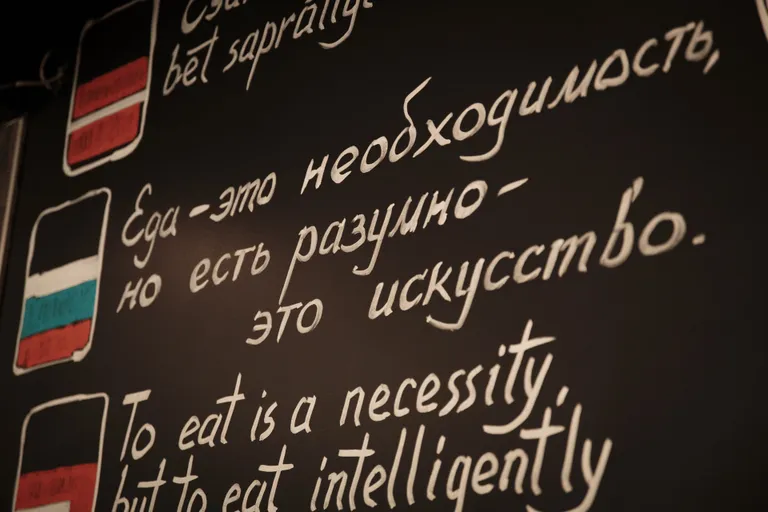 bet saprātīgi
Еда - это необходимость,
но есть разумно -
это искусство.
To eat is a necessity,
but to eat intelligently